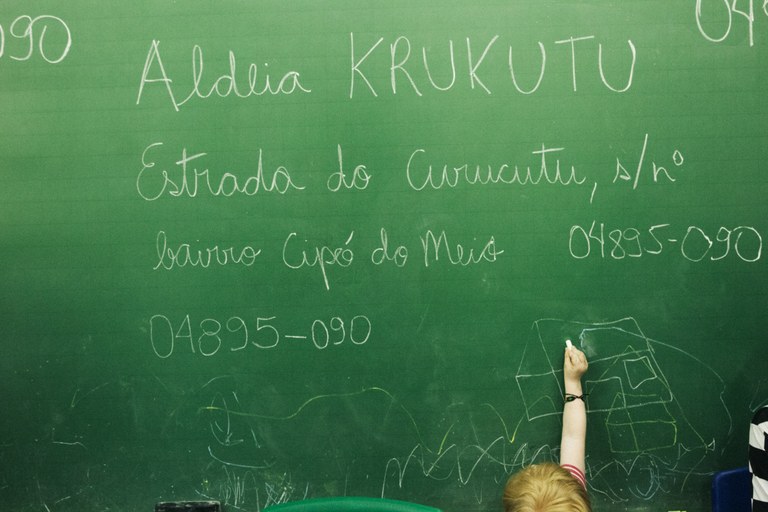 090
04
Aldeia KRUKUTU
Estrada do Curucutu, s/nº
bairro Cipó do Meio 04895-090
04895-090